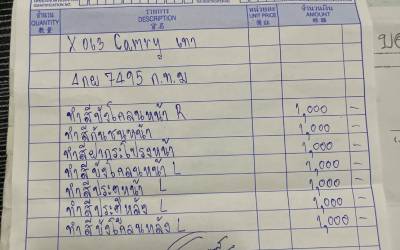 จำนวน รายการ หน่วยละ จำนวนเงิน
QUANTITY DESCRIPTION UNIT PRICE AMOUNT
數量 貨名 價格 銀額
X063 Camry เทา
4กผ 7495 ก.ท.ม
ทำสีบังโคลนหน้า R 1,000 -
ทำสีกันชนหน้า 1,000 -
ทำสีฝากระโปรงหน้า 1,000 -
ทำสีบังโคลนหน้า L 1,000 -
ทำสีประตูหน้า L 1,000 -
ทำสีประตูหลัง L 1,000 -
ทำสีบังโคลนหลัง L 1,000 -